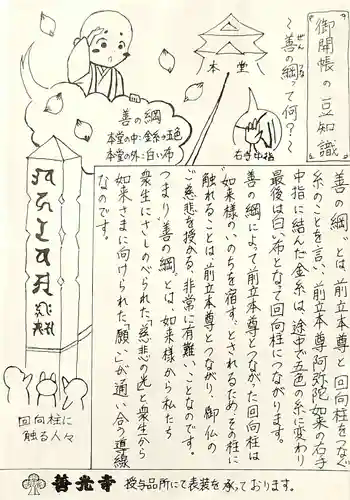 御開帳の豆知識
～善の綱って何？～
本堂
右手中指
善の綱
本堂の中：金糸→五色
本堂の外：白い布
回向柱に
触る人々
”善の綱”とは、前立本尊と回向柱をつなぐ
糸のことを言い、前立本尊阿弥陀如来の右手
中指に結んだ金糸は、途中で五色の糸に変わり
最後は白い布となって回向柱につながります。
善の綱によって前立本尊とつながった回向柱は
”如来様のいのちを宿す”とされるため、その柱に
触れることは、前立本尊とつながり、御仏の
ご慈悲を授かる、非常に有難いことなのです。
つまり”善の綱”とは、如来様から私たち
衆生にさしのべられた「慈悲の光」と衆生から
如来さまに向けられた「願い」が通い合う導線
なのです。
善光寺 授与品所にて表装を承っております。